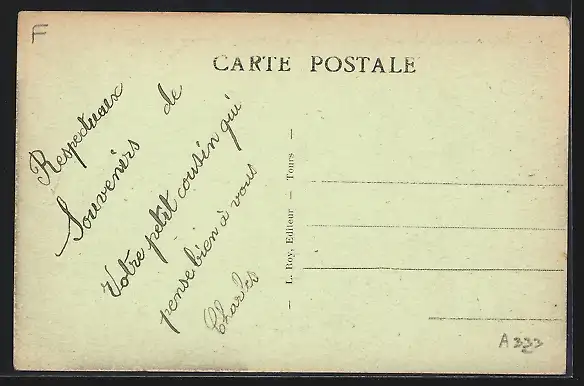 F
CARTE POSTALE
Respectueux
Souvenirs de
Votre petit cousin qui
pense bien à vous
Charles
— L. Roy, Editeur — Tours —
A 333